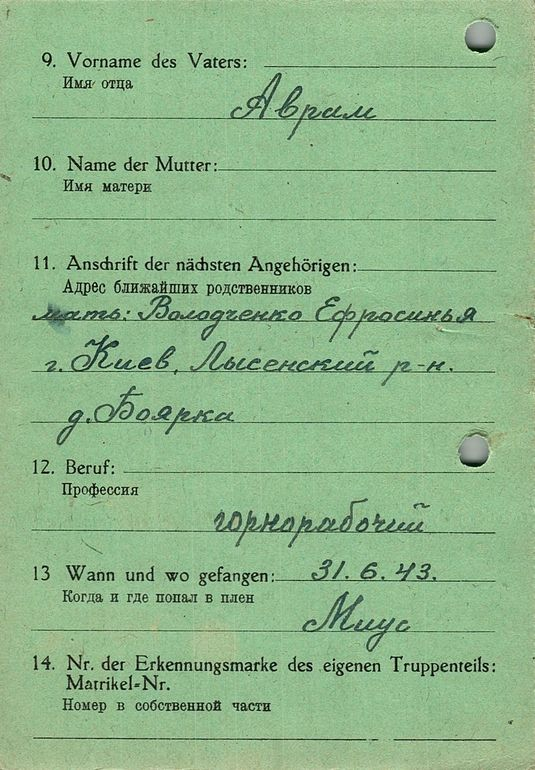 9. Vorname des Vaters:
Имя отца
Аврам
10. Name der Mutter:
Имя матери
11. Anschrift der nächsten Angehörigen:
Адрес ближайших родственников
мать: Володченко Ефросинья
г. Киев, Лысенский р-н.
д. Боярка
12. Beruf:
Профессия
горнорабочий
13 Wann und wo gefangen: 31.6.43.
Когда и где попал в плен
Миус
14. Nr. der Erkennungsmarke des eigenen Truppenteils:
Matrikel-Nr.
Номер в собственной части